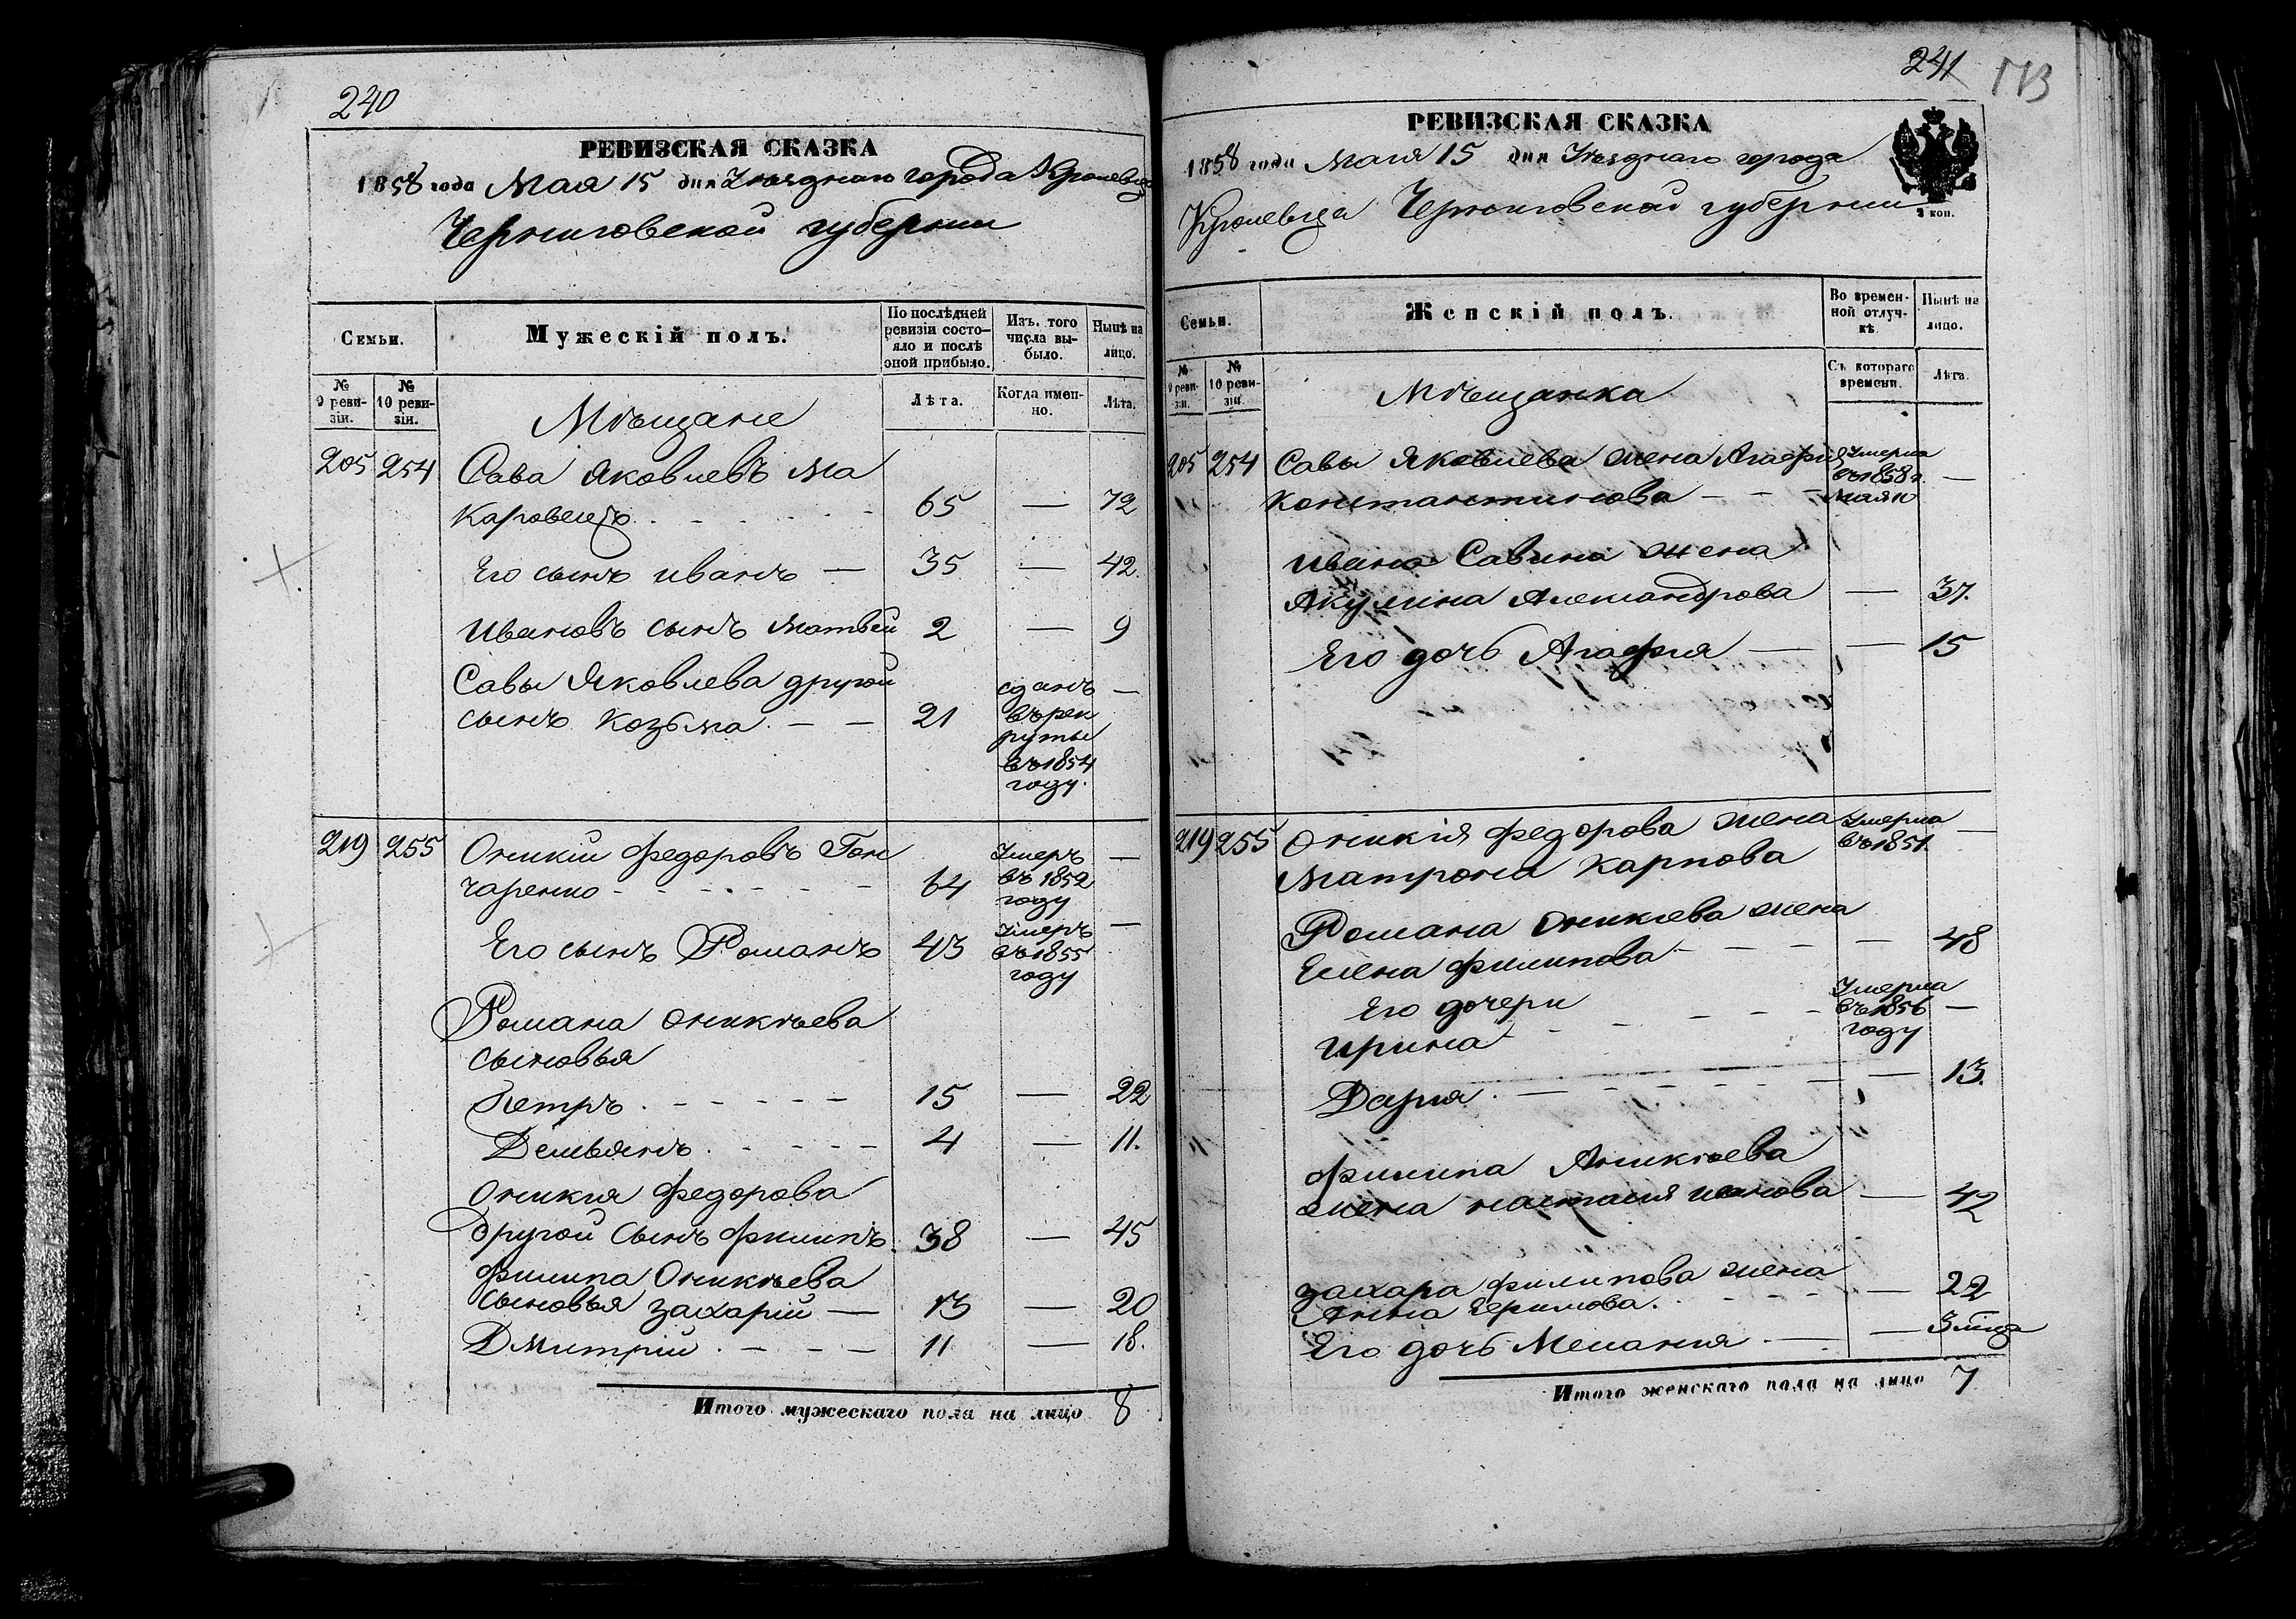 240
РЕВИЗСКАЯ СКАЗКА
1858 года Мая 15 дня Уѣзднаго города Кролевца
Черниговской губернии
Семьи.
Мужескій полъ.
По послѣдней ревизіи состояло и послѣ оной прибыло.
Изъ того числа выбыло.
Нынѣ на лицо.
№ 9 ревизіи.
№ 10 ревизіи.
Лѣта.
Когда именно.
Лѣта.
Мѣщане
205 254 Сава Яковлевъ Ма
каровецъ 65 — 72
Его сынъ Иванъ — 35 — 42.
Ивановъ сынъ Матвѣй 2 — 9
Савы Яковлева другой
сынъ Козьма — — 21 сданъ въ рекруты въ 1854 году. —
219 255 Оникий Федоровъ Гон
чаренко 64 Умеръ въ 1852 году —
Его сынъ Романъ 43 Умеръ въ 1855 году —
Романа Оникѣева
сыновья
Петръ 15 — 22
Демьянъ 4 — 11.
Оникия Федорова
другой сынъ Филипъ. 38 — 45
Филипа Оникѣева
сыновья Захарій — 13 — 20
Дмитрій 11 — 18.
Итого мужескаго пола на лицо 8
241
173
РЕВИЗСКАЯ СКАЗКА
1858 года Мая 15 дня Уѣзднаго города
Кролевца Черниговской губернии
коп.
Семьи.
Женскій полъ.
Во временной отлучкѣ.
Нынѣ на лицо.
№ 9 ревизіи.
№ 10 ревизіи.
Съ котораго времени.
Лѣта.
Мѣщанка
205 254 Савы Яковлева жена Агафия Умерла въ 1858 г. —
Константинова — — Мая 10
Ивана Савина жена
Акулина Александрова — 37.
Его дочь Агафия — — 15
219 255 Оникія Федорова жена Умерла въ 1851. —
Матрона Карпова
Романа Оникиева жена
Елена Филипова — 48
Его дочери Умерла въ 1856 году —
Ирина
Дария — 13.
Филипа Аникѣева
жена Настасия Иванова — 42
Захара Филипова жена
Анна — 22
Его дочь Мелания — — 3 мѣца
Итого женскаго пола на лицо 7